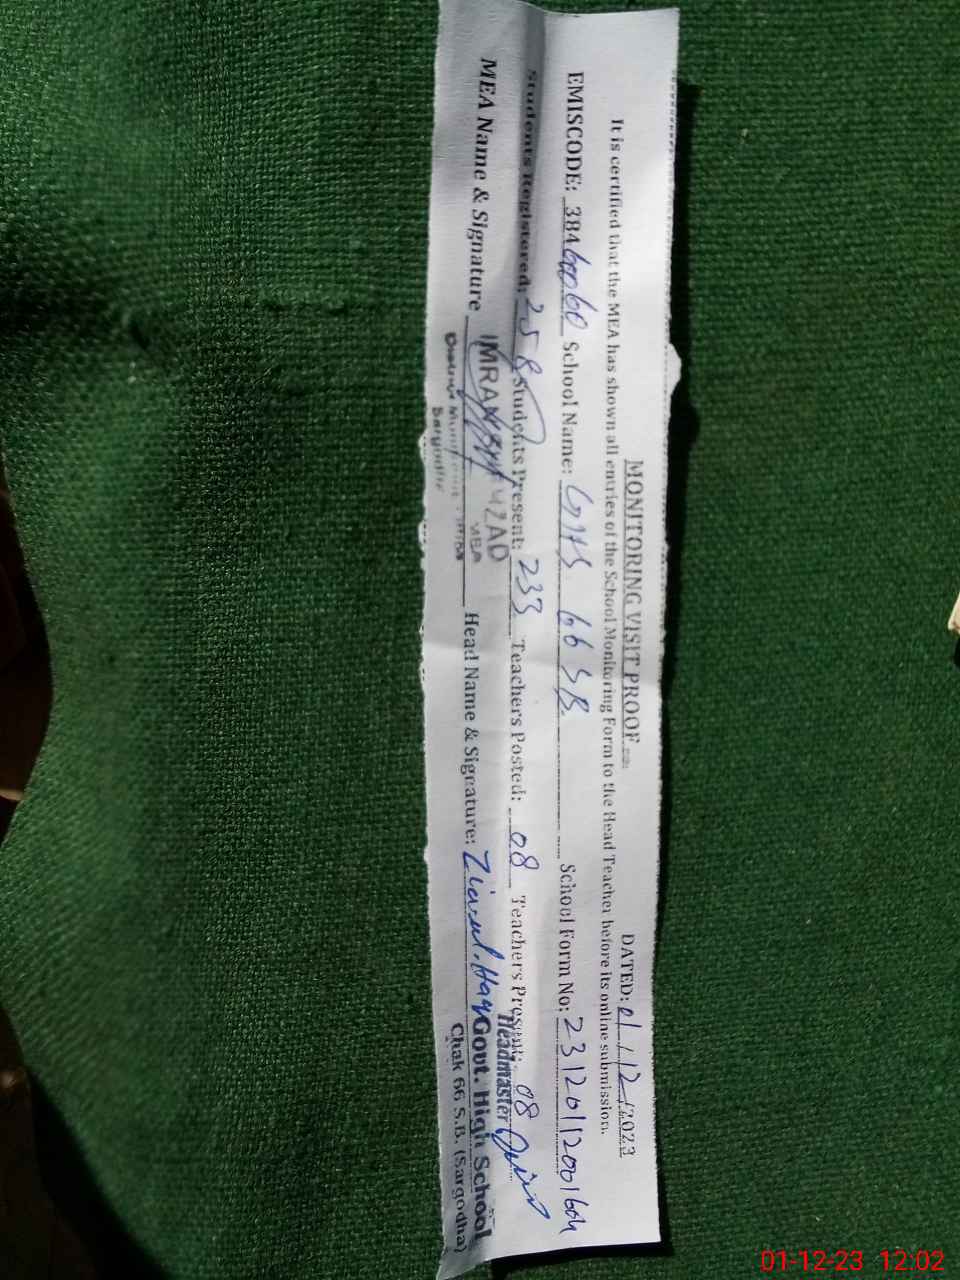 MONITORING VISIT PROOF
DATED: 01/12/2023
It is certified that the MEA has shown all entries of the School Monitoring Form to the Head Teacher before its online submission.
EMISCODE: 38460060 School Name: GHS 66 SB. School Form No:
Students Registered: 258 Students Present: 233 Teachers Posted: 08 Teachers Present: 08
MEA Name & Signature IMRAN MEA Head Name & Signature: Zia-ul-Haq
District Monitoring
Sargodha
Headmaster
Govt. High School
Chak 66 S.B. (Sargodha)
01-12-23 12:02